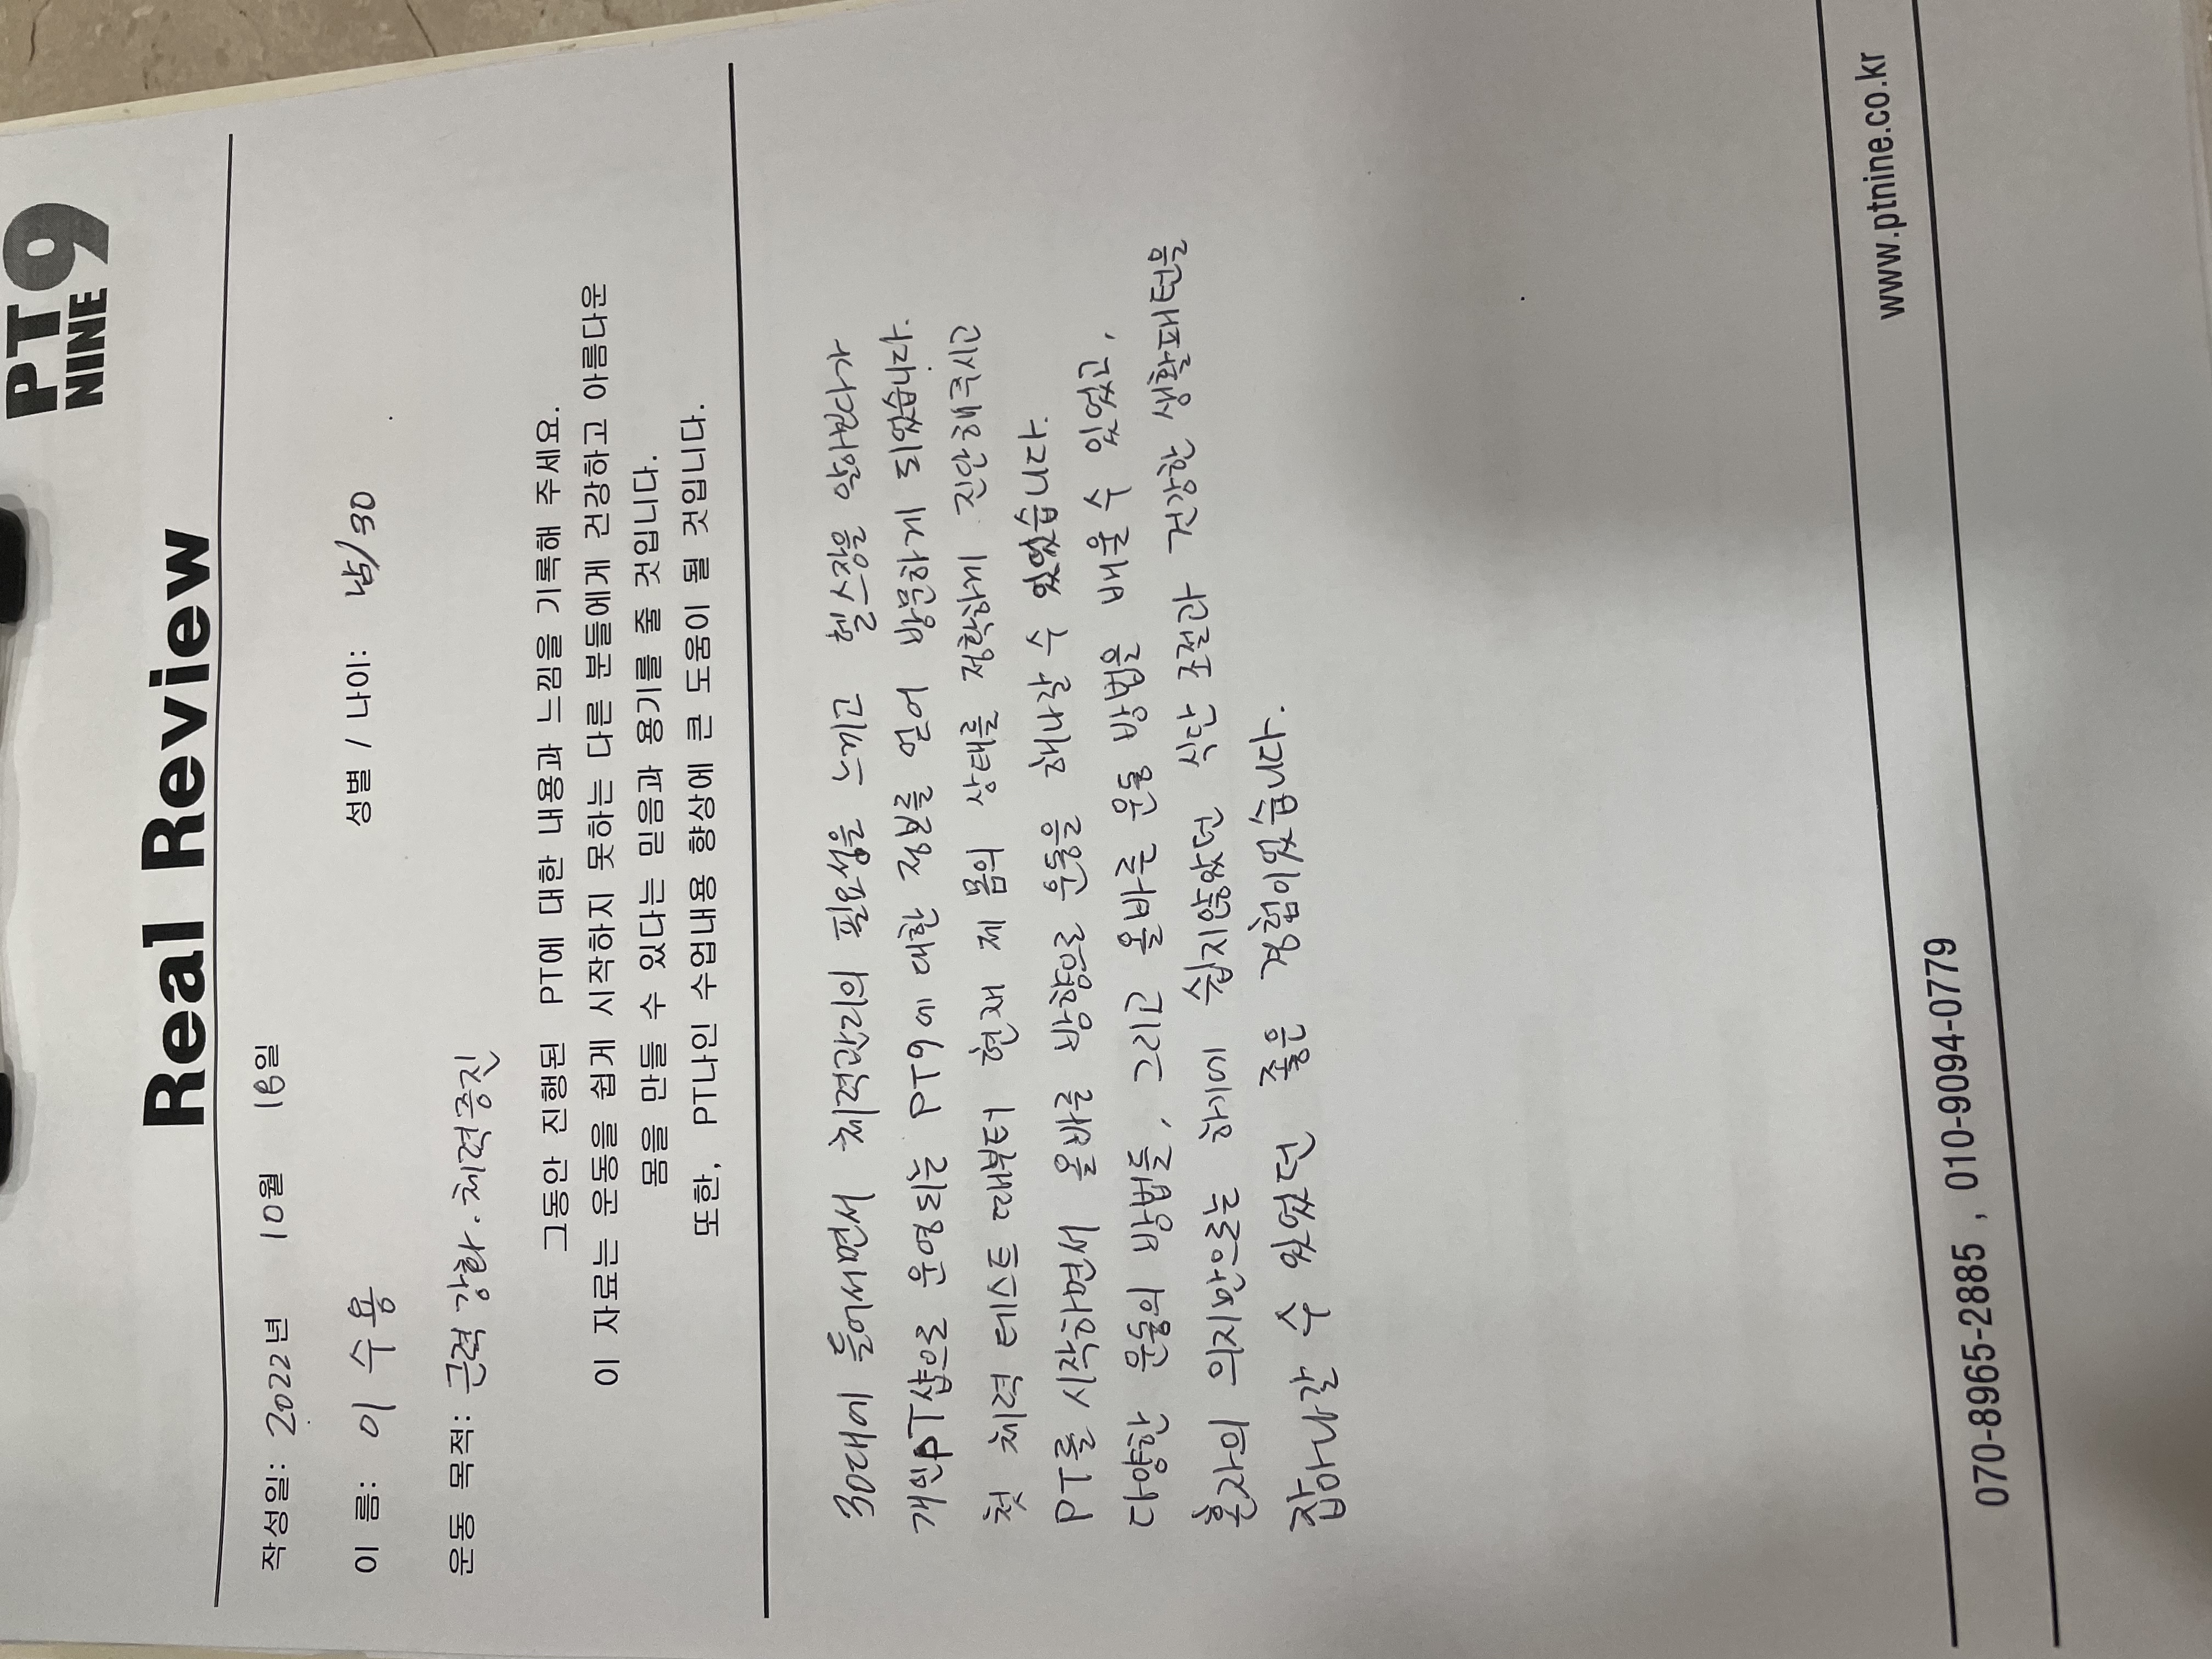 PT9
NINE
Real Review
작성일: 2022년 10월 18일
이 름: 이수용 성별 / 나이: 남/30
운동 목적: 근력 강화·체력증진
그동안 진행된 PT에 대한 내용과 느낌을 기록해 주세요.
이 자료는 운동을 쉽게 시작하지 못하는 다른 분들에게 건강하고 아름다운
몸을 만들 수 있다는 믿음과 용기를 줄 것입니다.
또한, PT나인 수업내용 향상에 큰 도움이 될 것입니다.
30대에 들어서면서 체력관리의 필요성을 느끼고 헬스장을 알아보다가
개인PT샵으로 운영되는 PT9에 대한 정보를 얻어 방문하게 되었습니다.
첫 체력 테스트 때부터 현재 제 몸의 상태를 정확하게 진안해주시고
PT를 시작하면서 올바른 방향으로 운동을 해나갈 수 있었습니다.
다양한 운동의 방법들, 그리고 올바른 운동 방법을 배울 수 있었고,
혼자의 의지만으로는 하기에 쉽지않았던 식단 조절과 건강한 생활패턴을
잡아나갈 수 있었던 좋은 경험이었습니다.
070-8965-2885 , 010-9094-0779 www.ptnine.co.kr